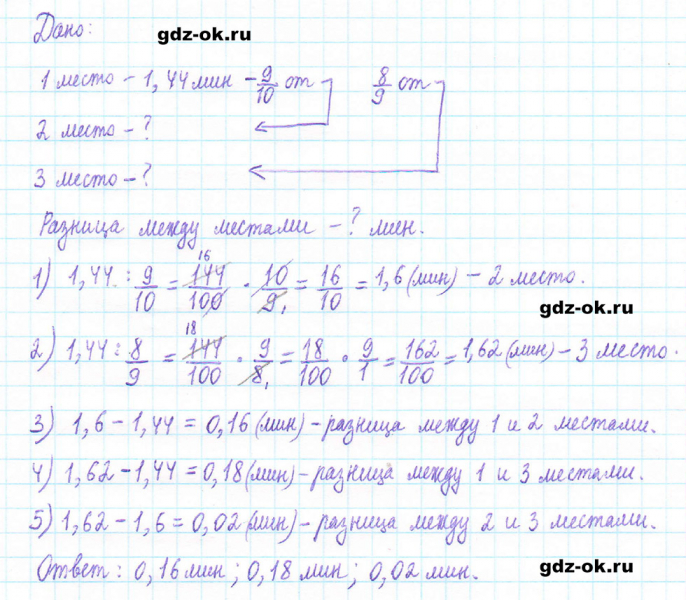 Дано:
gdz-ok.ru
1 место - 1,44 мин - 9/10 от 8/9 от
2 место - ?
3 место - ?
Разница между местами - ? мин.
1) 1,44 : 9/10 = 144/100 16 · 10/9 1 = 16/10 = 1,6 (мин) - 2 место.
gdz-ok.ru
2) 1,44 : 8/9 = 144/100 18 · 9/8 1 = 18/100 · 9/1 = 162/100 = 1,62 (мин) - 3 место.
3) 1,6 - 1,44 = 0,16 (мин) - разница между 1 и 2 местами.
4) 1,62 - 1,44 = 0,18 (мин) - разница между 1 и 3 местами.
5) 1,62 - 1,6 = 0,02 (мин) - разница между 2 и 3 местами.
Ответ: 0,16 мин; 0,18 мин; 0,02 мин.
gdz-ok.ru